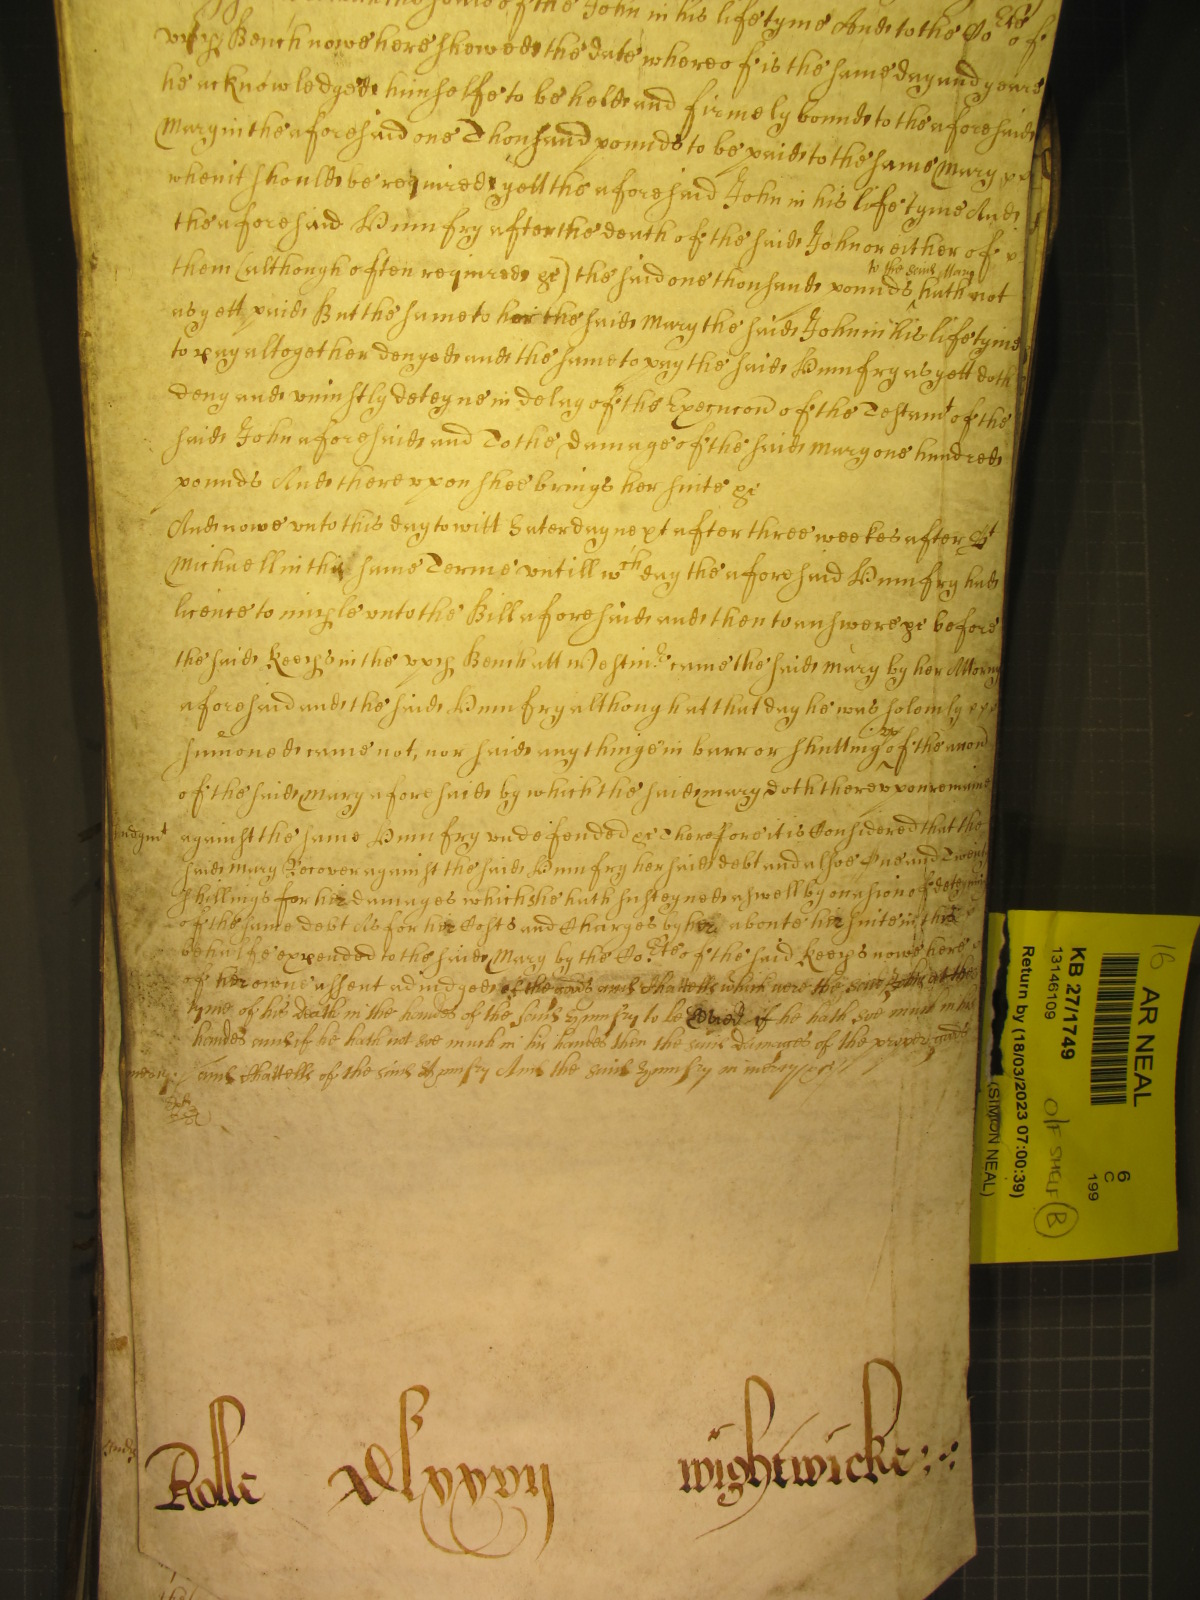 of the John in his life tyme And to the Co^rte of
upp Bench nowe here shewed the date whereof is the same day and yeare
he acknowledged himselfe to be held and firmely bound to the aforesaid
Mary in the aforesaid one Thousand pounds to be paid to the same Mary
when it should be required yett the aforesaid John in his life tyme And
the aforesaid Humfry after the death of the said John or either of
them (although often required &c) the said one thousand pounds ^to the said Mary hath not
as yett paid But the same to her the said Mary the said John in his life tyme
to pay altogether denyed and the same to pay the said Humfry as yett doth
deny and uniustly deteyne in delay of the Execucon of the Testam^t of the
said John aforesaid and To the damage of the said Mary one hundred
pounds And thereupon shee brings her suite &c
And nowe unto this day to witt Saterday next after three weekes after S^t
Michaell in this same Terme untill w^ch day the aforesaid Humfry had
licence to imple unto the Bill aforesaid and then to answere &c before
the said Keeps in the upp Bench att Westm^r came the said Mary by her Attorny
aforesaid and the said Humfry although att that day he was solemly
sumoned came not, nor said any thinge in barr or ^of the accon
of the said Mary aforesaid by which the said Mary doth thereupon remaine
Judgm^t against the same Humfry undefended &c Therefore it is Considered that the
said Mary Recover against the said Humfry her said debt and alsoe One and Twenty
Shillings for her damages which she hath susteyned aswell by occasion of deteyning
of the same debt As for her Costs and Charges by her aboute her suite in this
behalfe expended to the said Mary by the Co^rte of the said Keeps nowe here
of her owne assent adiudged of the goods and Chattells which were the said Johns at the
tyme of his death in the handes of the said Humfry to be Levied if he hath soe much in his
handes and if he hath not soe much in his handes then the said damages of the proper goods
mercy. and Chattells of the said Humfry And the said Humfry in mercy &c
Rolle
wightwicke
16
AR NEAL
KB 27/1749
13146109
Return by (18/03/2023 07:00:39)
(SIMON NEAL)
O/F SHELF B
6
C
199